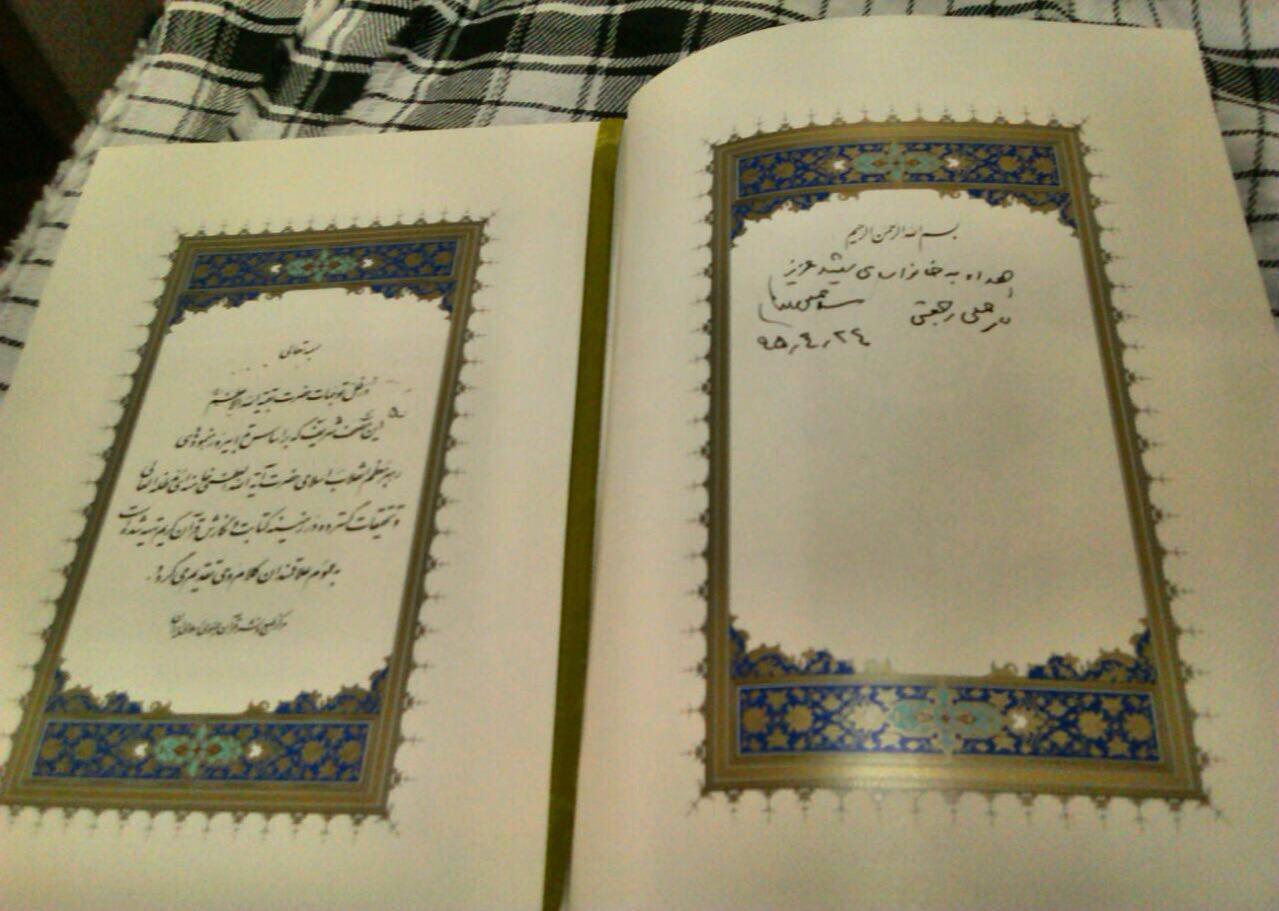 بسم الله الرحمن الرحیم
اهداء به خانواده ی شهید عزیز
رجعتی
۹۵٫۴٫۲۴
بسمه تعالی
در ظل توجهات حضرت بقیة الله الاعظم
این مصحف شریف که بر اساس تدابیر و رهنمودهای
رهبر معظم انقلاب اسلامی حضرت آیة الله العظمی خامنه ای مدظله العالی
و تحقیقات گسترده در زمینه کتابت و نگارش قرآن کریم تهیه شده است
به عموم علاقمندان کلام وحی تقدیم می گردد.
مرکز طبع و نشر قرآن جمهوری اسلامی ایران